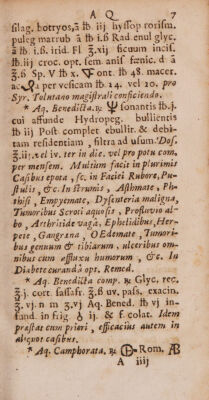 A Q 7
silag. botryos, ā ℔ iij hyssop rorism.
puleg marrub ā ℔ ib. i.ß Rad enul glyc.
ā ℔ i.ß. irid. Fl ℥.xij ficuum incis.
℔ iij croc. opt. sem. anis fœnic. d ā
℥.ß Sp. V ℔ x. font. ℔ 48. macer.
ac. per vesicam ℔ 24. vel 20. pro
Syr. Tolutano magistrali conficiendo.
* Aq. Benedicta. ♃ sonantis ℔.j.
cui affunde Hydropeg. bullientis
℔ iij Post complet ebullit. & debi-
tam residentiam, filtra ad usum. Dos.
℥.ij. vel iv. ter in die. vel pro potu com.
per mensem. Multum facit in plurimis
Casibus epota, sc, in Faciei Rubore, Pu-
stulis, &c. In Strumis, Asthmate, Ph-
thisi, Empyemate, Dysenteria maligna,
Tumoribus Scroti aquosis, Profluvio al-
bo, Arthritide vaga, Ephelidibus, Her-
pete, Gangrena, OEdemate, Tumori-
bus genuum & tibiarum, ulceribus om-
nibus cum affluxu humorum, &c. In
Diabete curandā opt. Remed.
* Aq. Benedicta comp. ♃ Glyc. rec.
℥ j. cort. sassafr. ℥.ß uv. pass. exacin.
℥.vj. n m ℥.vj Aq. Bened. ℔ vj in-
fund. in frig. ij. & f. colat. Idem
præstat cum priori, efficacius autem in
aliquos casibus.
* Aq. Camphorata. ♃ Rom. Æ
A iiij